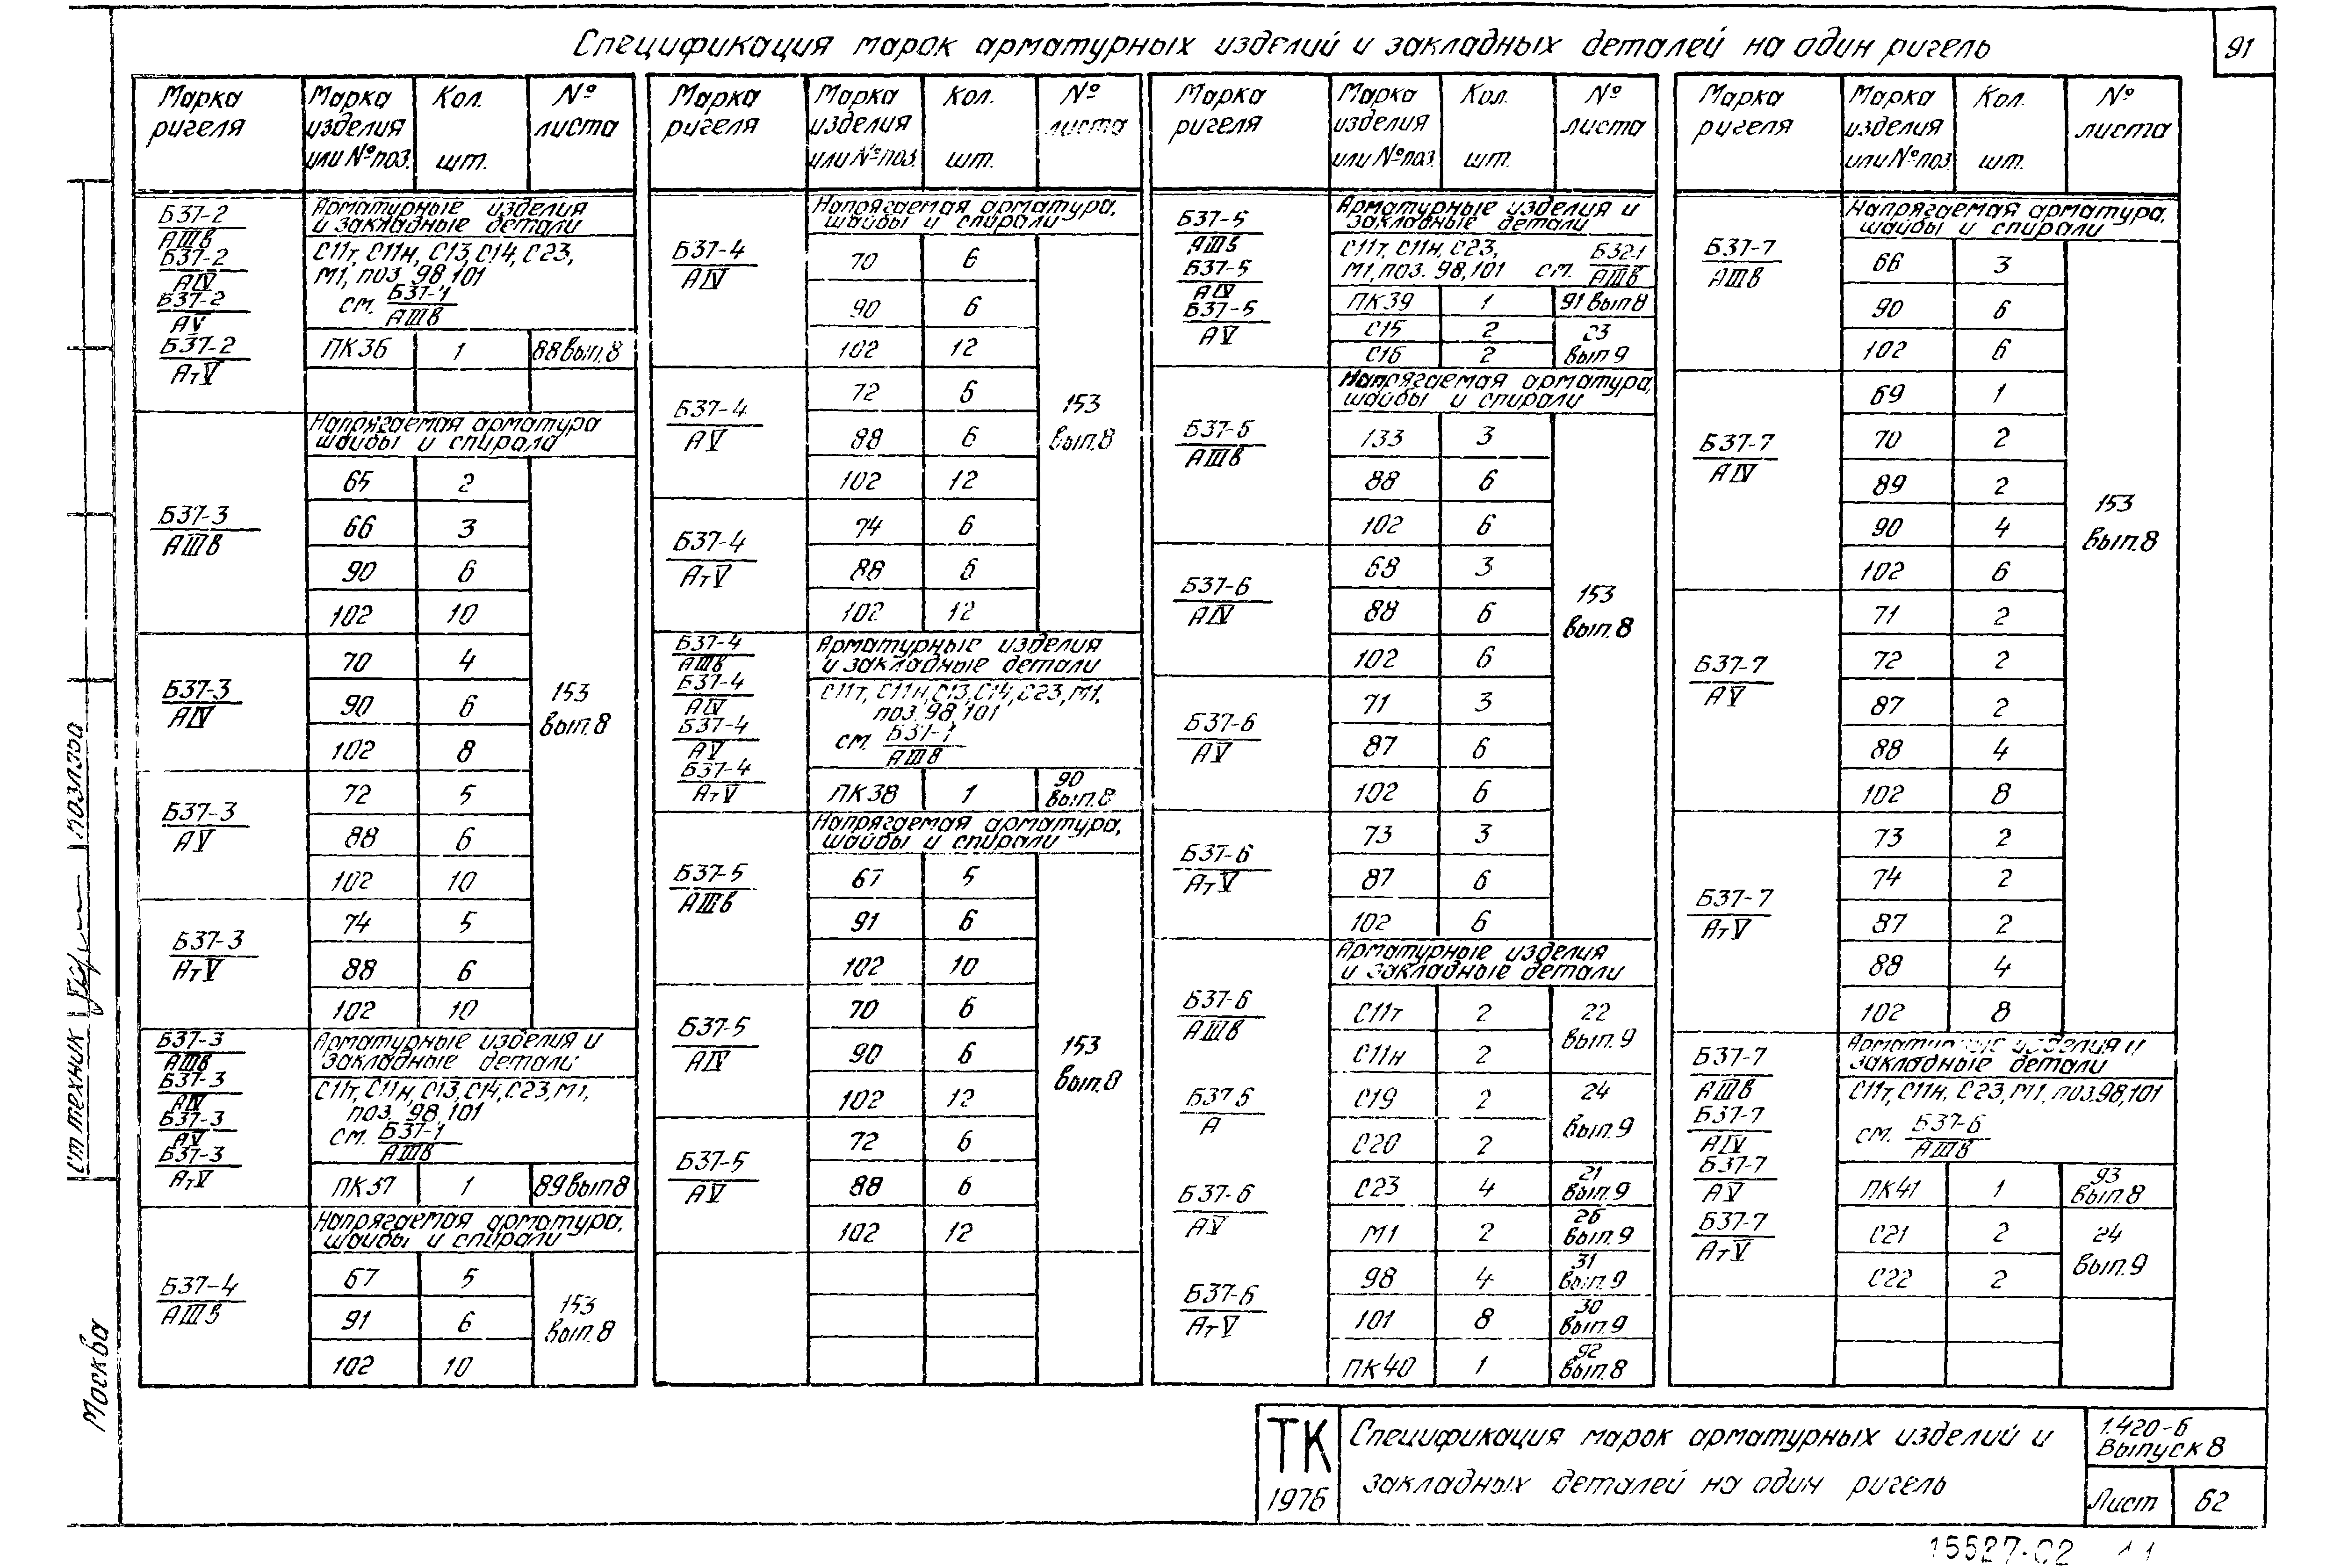 Спецификация марок арматурных изделий и закладных деталей на один ригель
91
Марка ригеля | Марка изделия или № поз. | Кол. шт. | № листа
Б37-2 АIIIв
Б37-2 АIV
Б37-2 АV
Б37-2 АтV
Арматурные изделия
и закладные детали
С11т, С11н, С13, С14, С23,
М1, поз. 98, 101
см. Б37-1 АIIIв
ПК36 1 88 вып.8
Напрягаемая арматура
шайбы и спирали
Б37-3 АIIIв
65 2
66 3
90 6
102 10
Б37-3 АIV
70 4
90 6
102 8
153 вып.8
Б37-3 АV
72 5
88 6
102 10
Б37-3 АтV
74 5
88 6
102 10
Б37-3 АIIIв
Б37-3 АIV
Б37-3 АV
Б37-3 АтV
Арматурные изделия и
закладные детали
С11т, С11н, С13, С14, С23, М1,
поз. 98, 101
см. Б37-1 АIIIв
ПК37 1 89 вып8
Напрягаемая арматура,
шайбы и спирали
Б37-4 АIIIв
67 5
91 6
102 10
153 вып.8
Марка ригеля | Марка изделия или № поз. | Кол. шт. | № листа
Напрягаемая арматура,
шайбы и спирали
Б37-4 АIV
70 6
90 6
102 12
Б37-4 АV
72 6
88 6
102 12
153 вып.8
Б37-4 АтV
74 6
88 6
102 12
Б37-4 АIIIв
Б37-4 АIV
Б37-4 АV
Б37-4 АтV
Арматурные изделия
и закладные детали
С11т, С11н, С13, С14, С23, М1,
поз. 98, 101
см. Б37-1 АIIIв
ПК38 1 90 вып.8
Напрягаемая арматура,
шайбы и спирали
Б37-5 АIIIв
67 5
91 6
102 10
Б37-5 АIV
70 6
90 6
102 12
153 вып.8
Б37-5 АV
72 6
88 6
102 12
Марка ригеля | Марка изделия или № поз. | Кол. шт. | № листа
Б37-5 АIIIв
Б37-5 АIV
Б37-5 АV
Арматурные изделия и
закладные детали
С11т, С11н, С23,
М1, поз. 98, 101 см. Б32-1 АIIIв
ПК39 1 91 вып8
С15 2
С16 2
23 вып9
Напрягаемая арматура,
шайбы и спирали
Б37-6 АIIIв
133 3
88 6
102 6
Б37-6 АIV
68 3
88 6
102 6
153 вып.8
Б37-6 АV
71 3
87 6
102 6
Б37-6 АтV
73 3
87 6
102 6
Арматурные изделия
и закладные детали
Б37-6 АIIIв
Б37-6 А
Б37-6 АV
Б37-6 АтV
С11т 2
С11н 2
22 вып.9
С19 2
С20 2
24 вып.9
С23 4 21 вып.9
М1 2 26 вып.9
98 4 31 вып.9
101 8 30 вып.9
ПК40 1 92 вып.8
Марка ригеля | Марка изделия или № поз. | Кол. шт. | № листа
Напрягаемая арматура,
шайбы и спирали
Б37-7 АIIIв
66 3
90 6
102 6
Б37-7 АIV
69 1
70 2
89 2
90 4
102 6
153 вып.8
Б37-7 АV
71 2
72 2
87 2
88 4
102 8
Б37-7 АтV
73 2
74 2
87 2
88 4
102 8
Б37-7 АIIIв
Б37-7 АIV
Б37-7 АV
Б37-7 АтV
Арматурные изделия и
закладные детали
С11т, С11н, С23, М1, поз.98,101
см. Б37-6 АIIIв
ПК41 1 93 вып.8
С21 2
С22 2
24 вып.9
ст техник
Москва
ТК
1976
Спецификация марок арматурных изделий и
закладных деталей на один ригель
1.420-6
Выпуск 8
Лист 62
15527-02